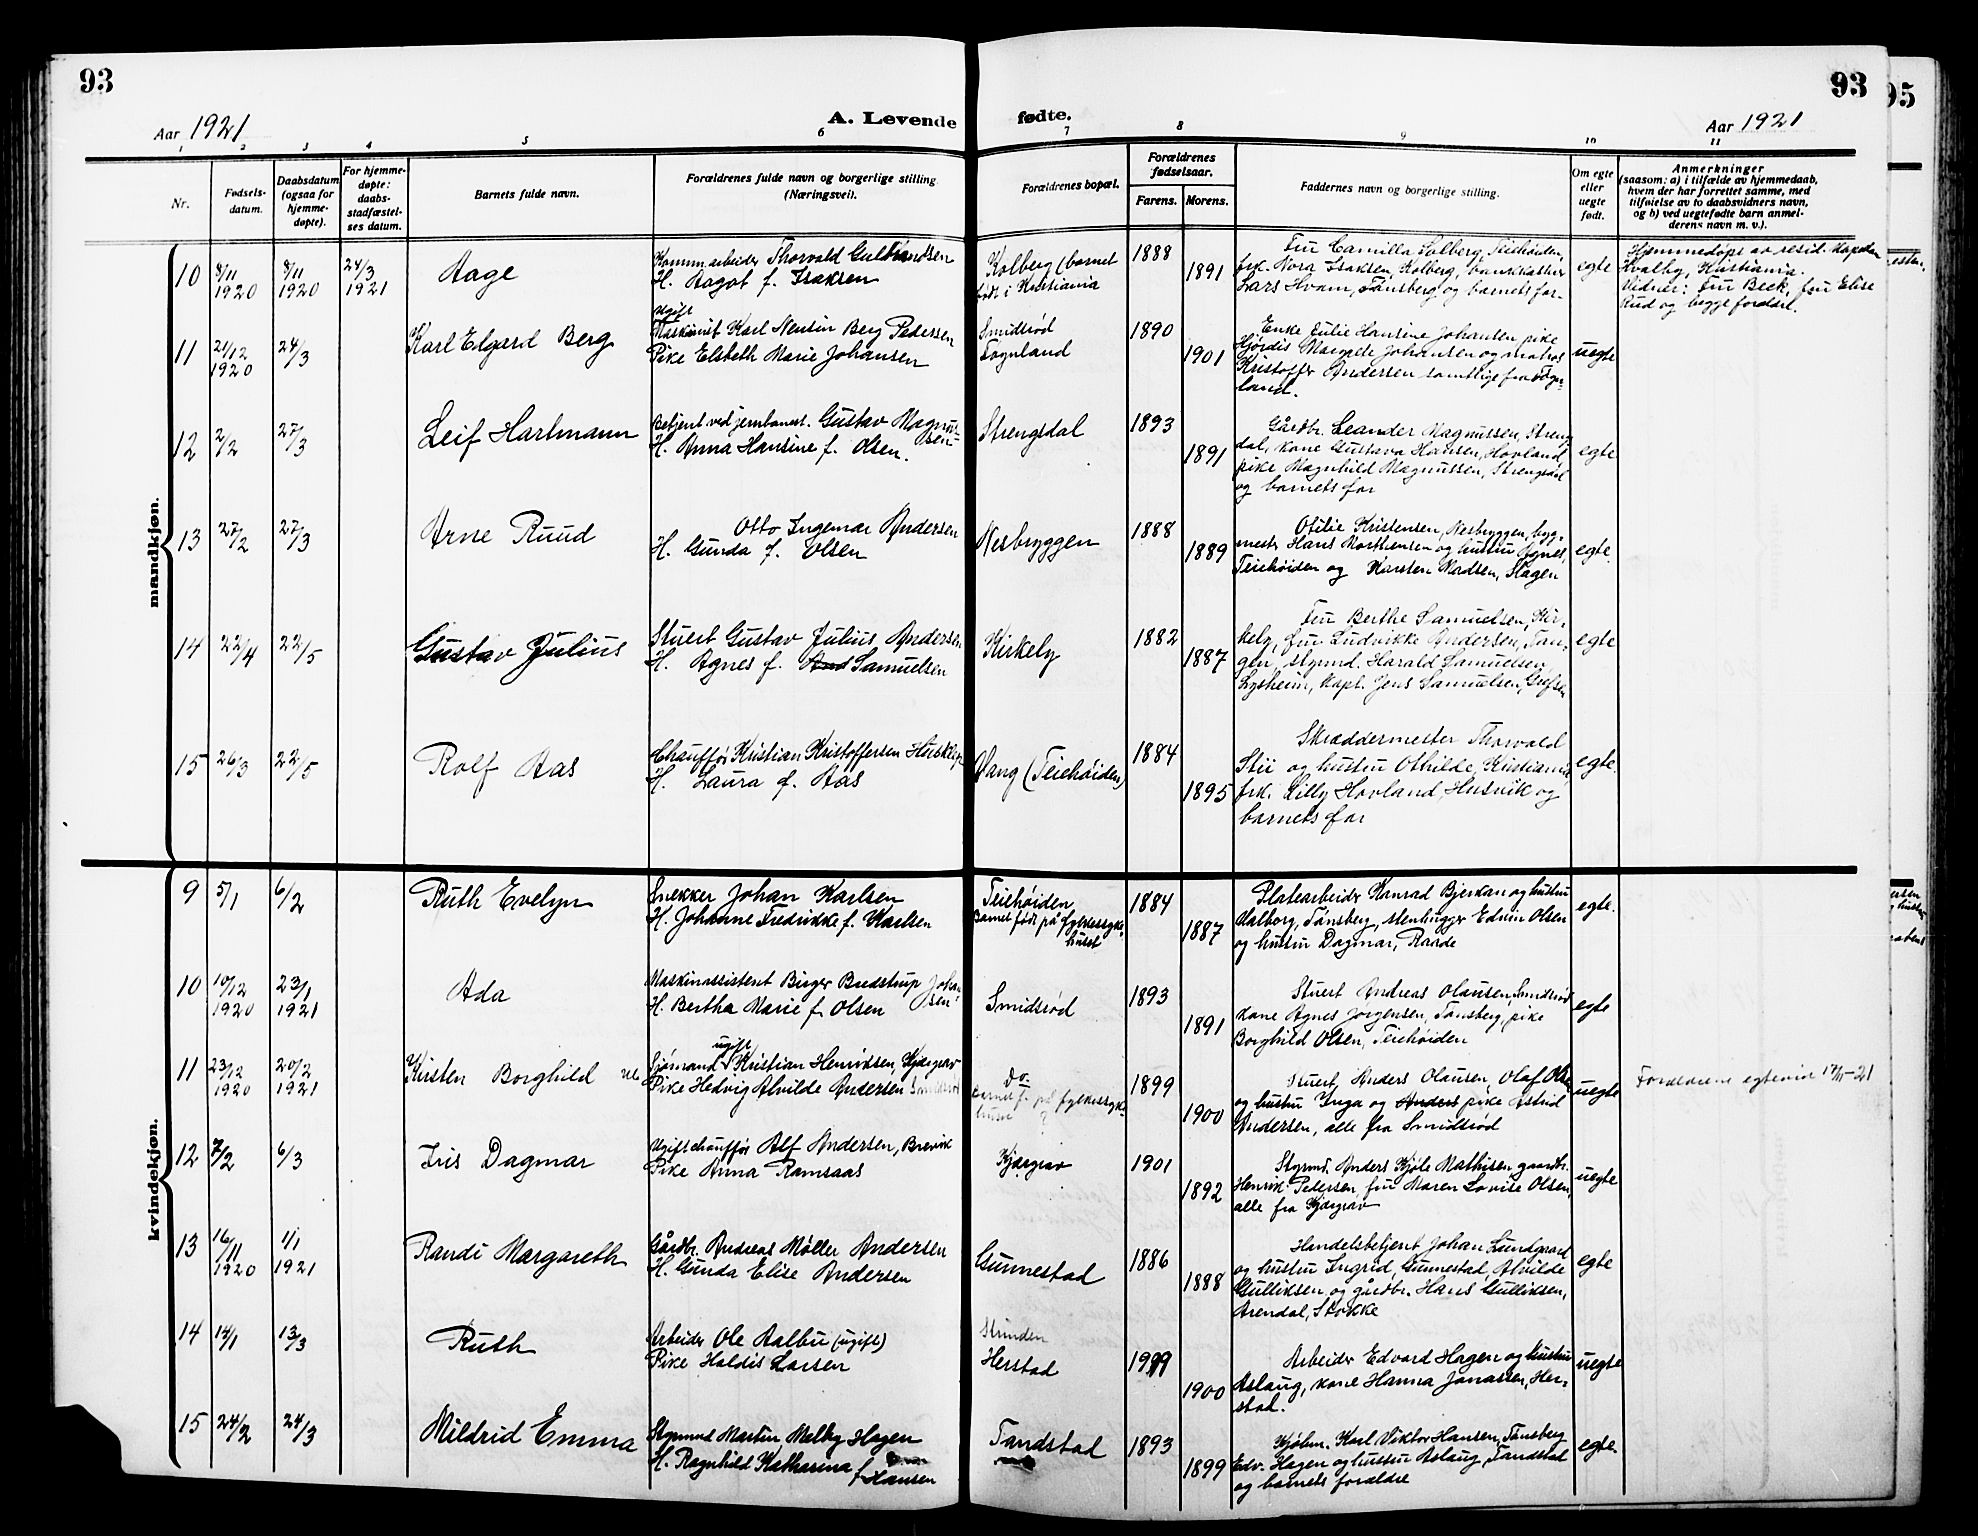 93
93
95
Aar 1921
A. Levende
fødte.
Aar 1921
1 2 3 4 5 6 7 8 9 10 11
Nr.
Fødsels-
datum.
Daabsdatum
(ogsaa for
hjemme-
døpte).
For hjemme-
døpte:
daabs-
stadfæstel-
ses datum.
Barnets fulde navn.
Forældrenes fulde navn og borgerlige stilling
(Næringsvei).
Forældrenes bopæl.
Forældrenes
fødselsaar.
Farens. Morens.
Faddernes navn og borgerlige stilling.
Om egte
eller
uegte
født.
Anmerkninger
(saasom: a) i tilfælde av hjemmedaab,
hvem der har forrettet samme, med
tilføielse av to daabsvidners navn,
og b) ved uegtefødte barn anmel-
derens navn m. v.).
mandkjøn.
10 8/11 1920 8/11 1920 24/3 1921
Aage
Komm.arbeider Thorvald
H. Aagot f. Isaksen
Kolberg (barnet
født i Kristiania
1888
1891
Fru Camilla Solberg, Teiehøiden,
frk. Nora Isaksen, Kolberg, bankkasserer
Lars Hvam, Tønsberg og barnets far.
egte
Hjemmedøpt av resid. kapellan
Hvalby, Kristiania.
Vidner: Fru Beck, fru Elise
Rud og begge forældre.
11 21/12 1920 24/3
Karl Elgard Berg
Ugift
Maskinist Karl Berg Pedersen
Pike Elsbeth Marie Johansen
Smidsrød
Fognland
1890
1901
Enke Julie Hansine Johansen pike
Hjørdis Margrete Johansen og matros
Kristoffer Andersen samtlige fra Fogn-
land.
uegte
12 2/2 27/3
Leif Hartmann
Betjent ved jernbanen. Gustav Magnus-
sen
H. Anna Hansine f. Olsen.
Strengsdal
1893
1891
Gårdbr. Leander Magnussen, Streng-
dal, kone Gustava Hansen, Hovland,
pike Magnhild Magnussen, Strengsdal
og barnets far
egte
13 27/2 27/3
Arne Ruud
Otto Ingemar Andersen
H. Gunda f. Olsen
Nesbryggen
1888
1889
Otilie Kristensen, Nesbryggen, byg-
mester Hans Morthensen og hustru Agnes,
Teiehøiden og Karsten Madsen, Slagen
egte.
14 22/4 22/5
Gustav Julius
Stuert Gustav Julius Andersen
H. Agnes f. And Samuelsen
Kirkely
1882
1887
Fru Berthe Samuelsen, Kir-
kely, fru Ludvikke Andersen, Tan-
gen, styrmd. Harald Samuelsen,
Lysheim, kapt. Jens Samuelsen,
egte
15 26/3 22/5
Rolf Aas
Chauffør Kristian Kristoffersen
H. Laura f. Aas
Vang (Teiehøiden)
1884
1895
Skræddermester Thorvald
Stii og hustru Othilde, Kristiania,
frk. Lilly Hovland, Husvik og
barnets far
egte.
kvindekjøn.
9 5/1 6/2
Ruth Evelyn
Snekker Johan Karlsen
H. Johanne Fredrikke f. Karlsen
Teiehøiden
Barnet født på fylkessyke-
huset
1884
1887
Platearbeider Konrad Bjerkan og hustru
Valborg, Tønsberg, stenhugger Edvin Olsen
og hustru Dagmar, Raade
egte.
10 10/12 1920 23/1 1921
Ada
Maskinassistent Birger Budstrup Johan-
sen
H. Bertha Marie f. Olsen
Smidsrød
1893
1891
Stuert Andreas Olausen, Smidsrød
kone Agnes Jørgensen, Tønsberg, pike
Borghild Olsen, Teiehøiden
egte
11 23/12 1920 20/2 1921
Kirsten Borghild
ugift
Sjømand Kristian Henriksen, Kjærgrav
Pike Hedvig Alvilde Andersen Smidsrød
Do.
barnet f. på fylkessyke-
huset
1899
1900
Stuert, Anders Olausen, Olaf Olsen
og hustru Inga og Anders pike Astrid
Andersen, alle fra Smidsrød
uegte
Forældrene egteviet
12 7/2 6/3
Iris Dagmar
Ugift chauffør Alf Andersen, Brevik
Pike Anna Ramsaas
Kjærgrav
1901
1892
Styrmd. Anders Kjøle Mathisen, gaardbr.
Henrik Pedersen, fru Maren Lovise Olsen,
alle fra Kjærgrav
uegte
13 16/11 1920 1/1 1921
Randi Margareth
Gårdbr. Andreas Møller Andersen
H. Gunda Elise Andersen
Gunnestad
1886
1888
Handelsbetjent Johan Lundgaard
og hustru Ingrid, Gunnestad, Alvilde
Gulliksen og gårdbr. Hans Gulliksen,
Arendal, Stokke
egte
14 14/1 13/3
Ruth
Arbeider Ole Aalbu (ugift)
Pike Haldis Larsen
Herstad
1900
Arbeider Edvard Hagen og hustru
Aslaug, kone Hanna Jonassen, Her-
stad.
uegte
15 24/2 24/3
Mildrid Emma
Styrmd Martin Melby Hagen
H. Ragnhild Katharina
f Hansen
Tandstad
1893
1899
Kjøbm. Karl Viktor Hansen, Tønsberg
Edv. Hagen og hustru Aslaug, Tandstad
og barnets forældre
egte.